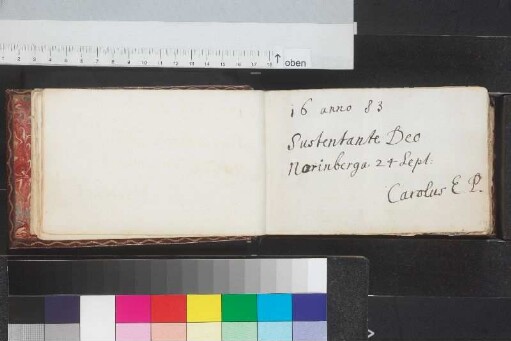 oben
16 anno 83
Sustentante Deo
Norinberga 24 Sept:
Carolus E P.